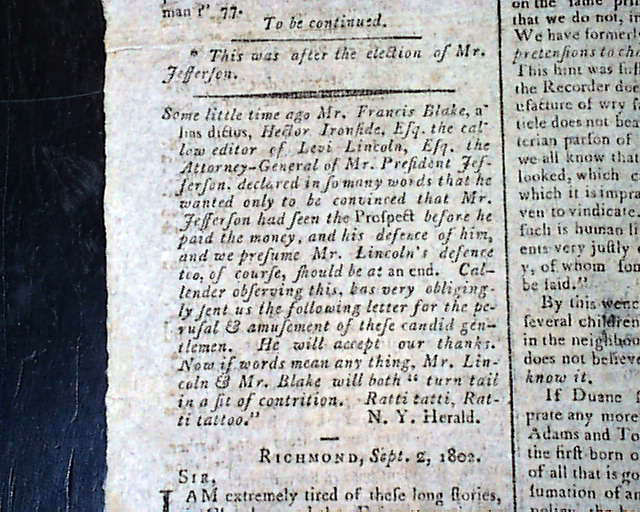 man 1" 77.
To be continued.
* This was after the election of Mr.
Jefferson.
Some little time ago Mr. Francis Blake, a-
lias dictus, Hector Ironside, Esq. the cal-
low editor of Levi Lincoln, Esq. the
Attorney-General of Mr. President Jef-
ferson. declared in so many words that he
wanted only to be convinced that Mr.
Jefferson had seen the Prospect before he
paid the money, and his defence of him,
and we presume Mr. Lincoln's defence
too, of course, should be at an end. Cal-
lender observing this, has very obliging-
ly sent us the following letter for the pe-
rusal & amusement of these candid gen-
tlemen. He will accept our thanks.
Now if words mean any thing, Mr. Lin-
coln & Mr. Blake will both "turn tail
in a fit of contrition. Ratti tatti, Rat-
ti tattoo." N. Y. Herald.
RICHMOND, Sept. 2, 1802.
SIR,
I AM extremely tired of these long stories,
on the same
that we do not, in
We have formerly
pretensions to
This hint was
the Recorder
ufacture of wry
ticle does not
terian parson of
we all know that
looked, which
which it is
ven to vindicate
such is human
ents very justly
y, of whom
be said."
By this
several children
in the
does not believe
know it.
If Duane
prate any more
Adams and To
the first born o
of all that is go
sumation of an